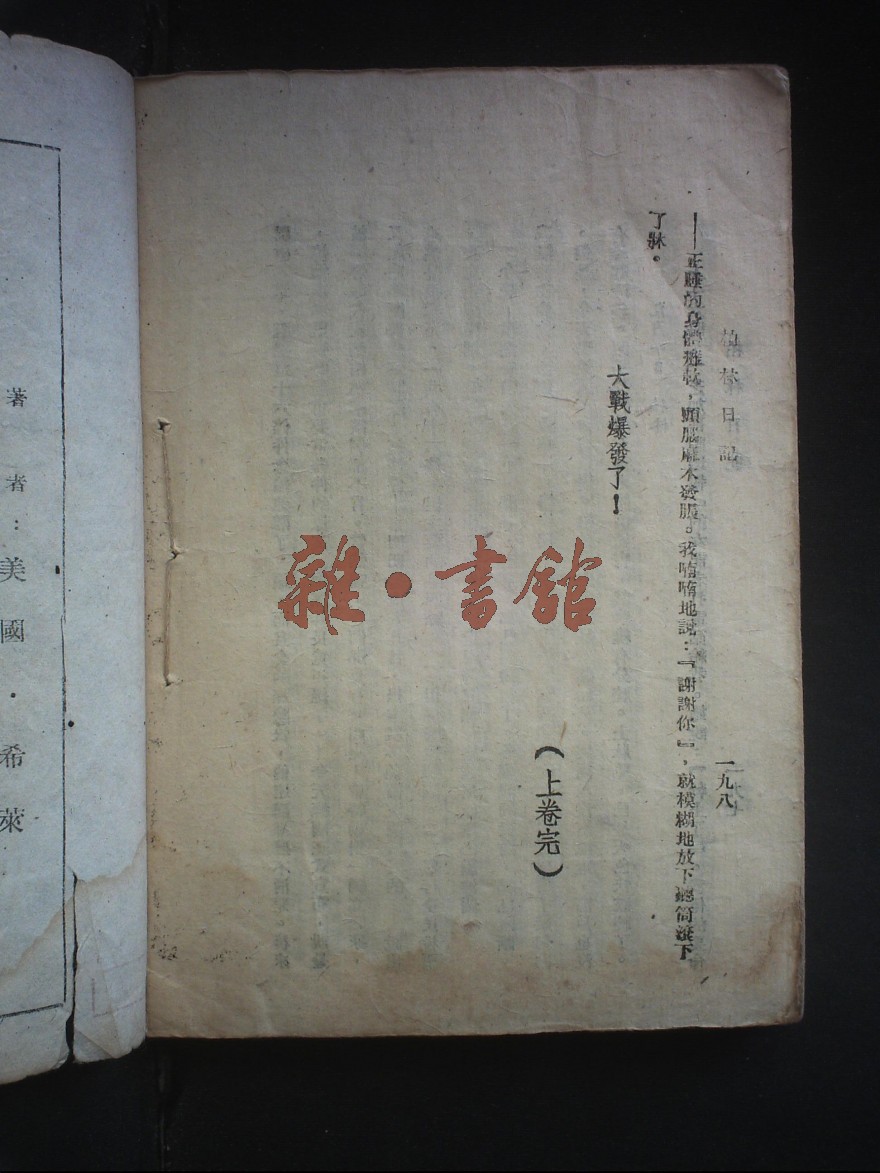 柏林日記
一九八
——正睡的身體癱軟，頭腦麻木發脹。我喃喃地說：『謝謝你』，就模糊地放下聽筒滾下
了牀。
大戰爆發了！
（上卷完）
雜·書館
著者：美國·希萊